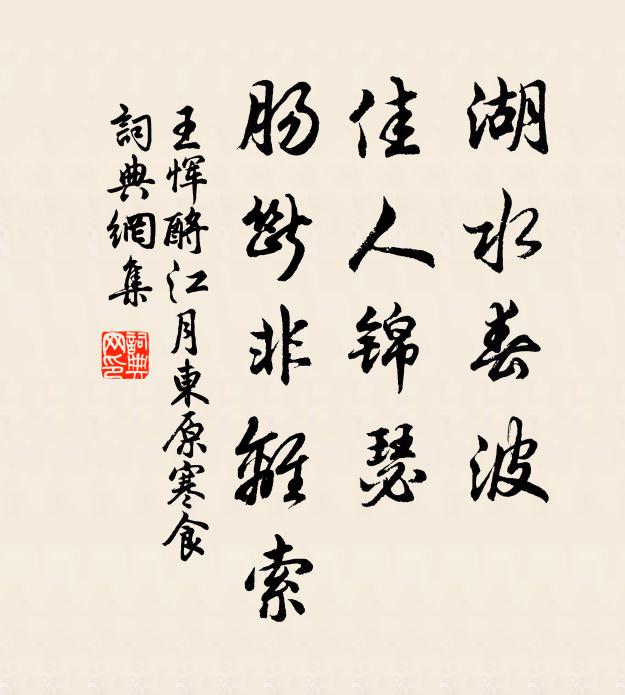 湖水春波
佳人锦瑟
肠断非離索
王恽酹江月東原寒食
詞典網集
詞典网印